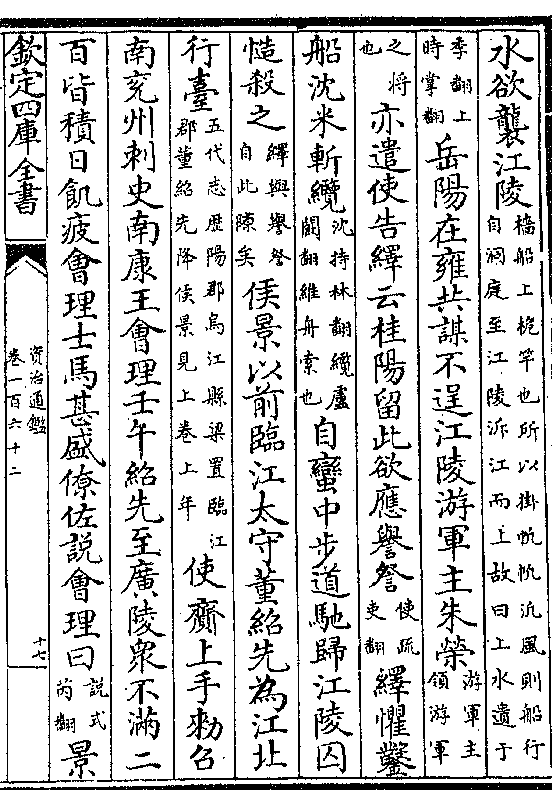 水欲襲江陵檣船上桅竿也所以掛帆帆汎風則船行自洞庭至江陵泝江而上故曰上水遺于
季翻上時掌翻岳陽在雍共謀不逞江陵游軍主朱榮游軍主領游軍
之將也亦遣使告繹云桂陽留此欲應譽詧使疏吏翻繹懼鑿
船沈米斬纜沈持林翻纜盧闞翻維舟索也自蠻中步道馳歸江陵囚
慥殺之繹與譽詧自此隙矣侯景以前臨江太守董紹先為江北
行臺五代志歴陽郡烏江縣梁置臨江郡董紹先降侯景見上卷上年使齎上手敕召
南兖州刺史南康王會理壬午紹先至廣陵衆不滿二
百皆積日飢疲會理士馬甚盛僚佐說會理曰說式芮翻景
欽定四庫全書
資治通鑑
卷一百六十二
十七